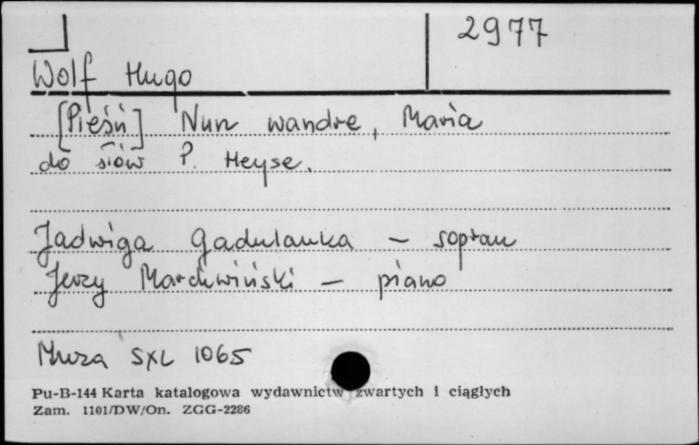 2977
Wolf Hugo
[Pieśń] Nun wandre, Maria
do słów P. Heyse.
Jadwiga Gadulanka – sopran
Jerzy Marchwiński – piano
Muza SXL 1065
Pu-B-144 Karta katalogowa wydawnictw zwartych i ciągłych
Zam. 1101/DW/On. ZGG-2286